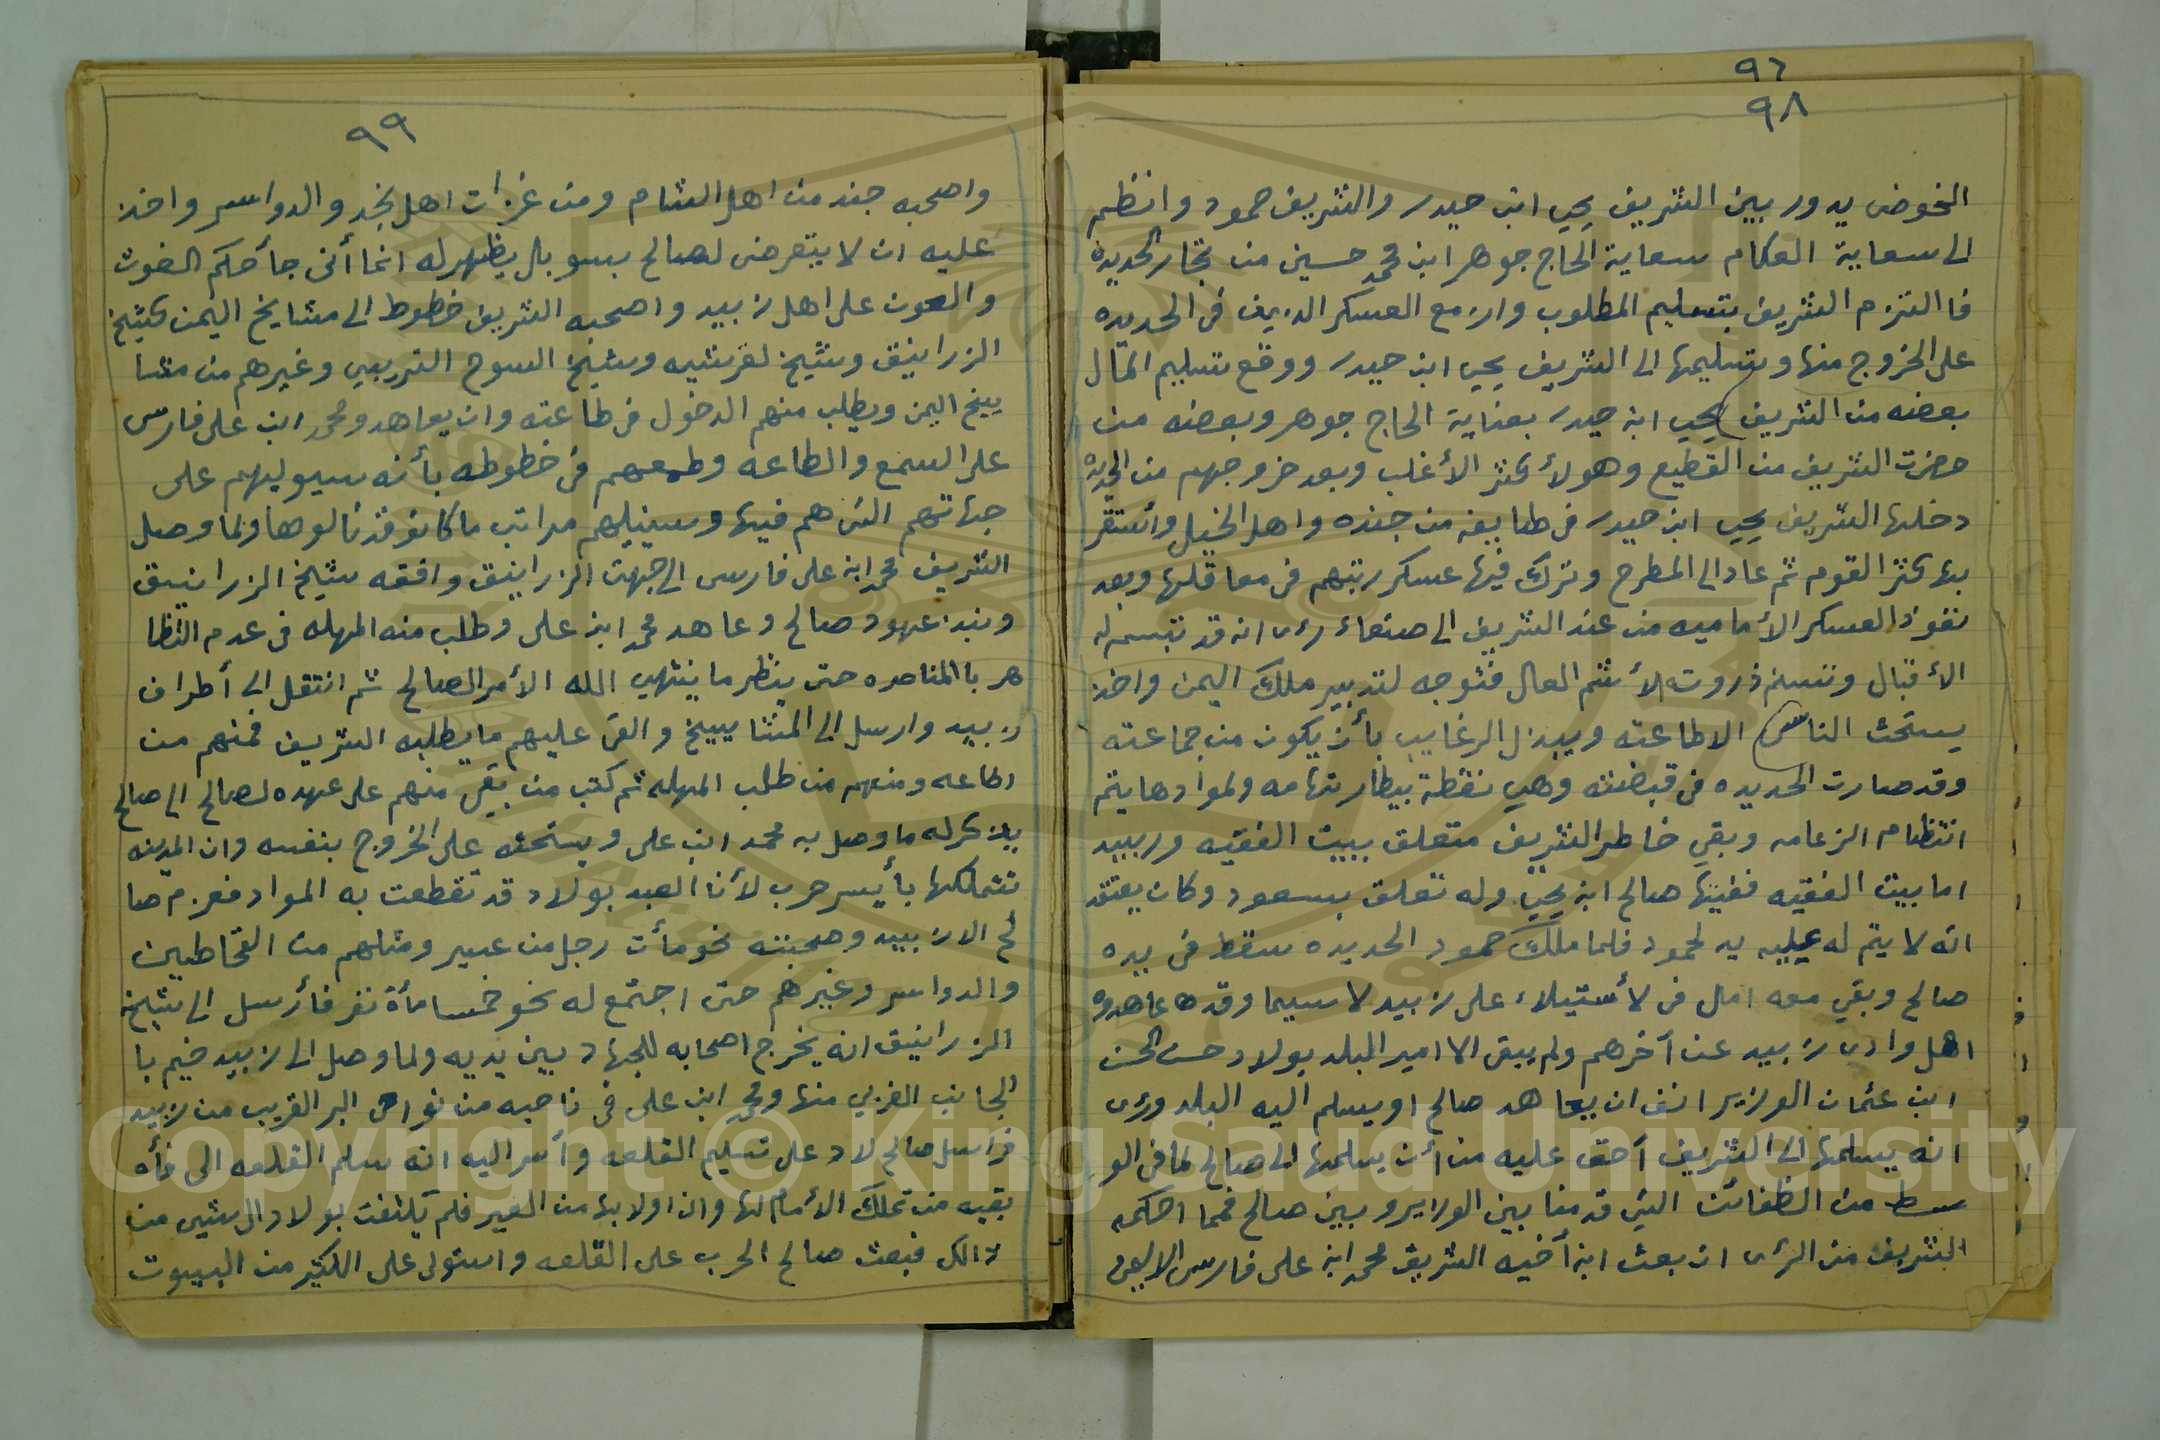 ٩٦
٩٨
الخوض يدور بين الشريف يحيى ابن حيدر والشريف حمود وانظم
الى سعاية العكام سعاية الحاج جوهر ابن محمد حسين من تجار الحديده
فا التزم الشريف بتسليم المطلوب وازمع العسكر الذين في الحديده
على الخروج منها وبتسليمها الى الشريف يحيى ابن حيدر ووقع تسليم المال
بعضه من الشريف يحيى ابن حيدر بعناية الحاج جوهر وبعضه من
حضرت الشريف من القطيع وهولأ كثر الأغلب وبعد خروجهم من الحديده
دخلها الشريف يحيى ابن حيدر في طايفه من جنده واهل الخيل وأستقر
بها كثر القوم ثم عاد الى المطرح وترك فيها عسكر رتبهم في معاقلها وبعد
نفوذ العسكر الأماميه من عند الشريف الى صنعاء رءى انه قد تبسم له
الأقبال وتسنم ذروت الأشم العال فتوجه لتدبير ملك اليمن واخذ
يستحث الناس الاطاعته ويبذل الرغايب بأن يكون من جماعته
وقد صارت الحديده في قبضته وهي نقطة بيطار تهامه ولموادها يتم
انتظام الزعامه وبقي خاطر الشريف متعلق ببيت الفقيه وزبيد
اما بيت الفقيه ففيها صالح ابن يحيى وله تعلق بسعود وكان يعتقد
انه لا يتم له عليه يد لحمود فلما ملك حمود الحديده سقط في يده
صالح وبقي معه امل في لأستيلاء على زبيد لا سيما وقد عاهدوه
اهل وادى زبيد عن آخرهم ولم يبق الا امير البلد بولاد حسن الحسن
ابن عثمان الوزير انف ان يعاهد صالح او يسلم اليه البلد ورءى
انه يسلمها الى الشريف أحق عليه من أن يسلمها الى صالح لما في الو
سط من الظغائن التي قدمنا بين الوزير وبين صالح فمما احكمه
الشريف من الرءى ان بعث ابن أخيه الشريف محمد ابن على فارس الا ليمن
٩٩
واصحبه جند من اهل الشام ومن غزات اهل نجد والدواسر واخذ
عليه ان لا يتعرض لصالح بسو بل يظهر له انما أتى جأ حكم الغوث
والعون على اهل زبيد واصحبه الشريف خطوط الى مشايخ اليمن كشيخ
الزرانيق وشيخ لقرشيه وشيخ السوح التريبي وغيرهم من مشا
ييخ اليمن ويطلب منهم الدخول في طاعته وان يعاهدو محمد ابن على فارس
على السمع والطاعه وطمعهم في خطوطه بأنه سيوليهم على
جهاتهم التي هم فيها وسينيلهم مراتب ما كانو قد نالوها ولما وصل
الشريف محمد ابن على فارس الى جهت الزرانيق وافقه شيخ الزرانيق
ونبذ عهود صالح وعاهد محمد ابن على وطلب منه المهله في عدم التظا
هر با المناصره حتى ينظر ما ينتهي الله الأمر الصالح ثم انتقل الى أطراف
زبيد وارسل الى المشاييخ والقى عليهم ما يطلبه الشريف فمنهم من
اطاعه ومنهم من طلب المهله ثم كتب من بقي منهم على عهده لصالح الى صالح
يذكر له ما وصل به محمد ابن على ويستحثه على الخروج بنفسه وان المدينه
تتملكها بأيسر حرب لأنا العبد بولاد قد تقطعت به المواد فعزم صا
لح الا زبيد وصحبته نحو مأت رجل من عسير ومثلهم من القحاطين
والدواسر وغيرهم حتى اجتمع له نحو خمسامأة نفر فأرسل الى شيخ
الزرانيق انه يخرج اصحابه للجهاد بين يديه ولما وصل الى زبيد خيم با
لجانب الغربي منها ومحمد ابن على في ناحيه من نواحى البر القريب من زبيد
فراسل صالح لاد على تسليم القلعه وأسر اليه انه سلم القلعه الى فأه
بقيه من تملك الأمام لها وان اولا بها من الغير فلم يلتفت بولاد ال شيى من
ذالك فبعث صالح الحرب على القلعه واستولى على الكثير من البيوت
Copyright © King Saud University